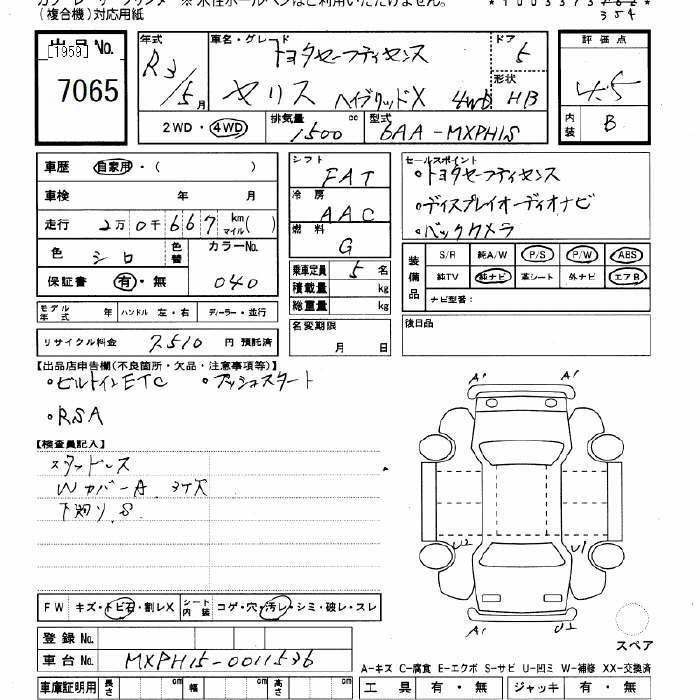 (複合機)対応用紙
354
出品No.
[1959]
7065
年式
R3/5月
車名・グレード
トヨタセーフティセンス
ヤリス ハイブリッドX 4WD
ドア
5
形状
HB
評価点
4.5
内装
B
2WD・4WD
排気量
1500 cc
型式
6AA-MXPH15
車歴 自家用・( )
車検 年 月
走行 2万0千667 km マイル( )
色 シロ 色替
カラーNo.
040
保証書 有・無
モデル年式 年 ハンドル 左・右 ディーラー・並行
リサイクル料金 7510 円 預託済
シフト
FAT
冷房
AAC
燃料
G
乗車定員 5名
積載量 kg
総重量 kg
名変期限
月 日
セールスポイント
・トヨタセーフティセンス
・ディスプレイオーディオナビ
・バックカメラ
装備品
S/R 純A/W P/S P/W ABS
純TV 純ナビ 革シート 外ナビ エアB
ナビ型番:
後日品
【出品店申告欄(不良箇所・欠品・注意事項等)】
・ビルトインETC ・プッシュスタート
・RSA
【検査員記入】
スタッドレス
WカバーA
下廻りS
FW キズ・トビ石・割レX
シート内装 コゲ・穴・汚レ・シミ・破レ・スレ
登録No.
車台No. MXPH15-0011536
車庫証明用 長さ cm 幅 cm 高さ cm
A1 A1
U2 U1
A1 U2
スペア
A-キズ C-腐食 E-エクボ S-サビ U-凹ミ W-補修 XX-交換済
工具 有・無 ジャッキ 有・無